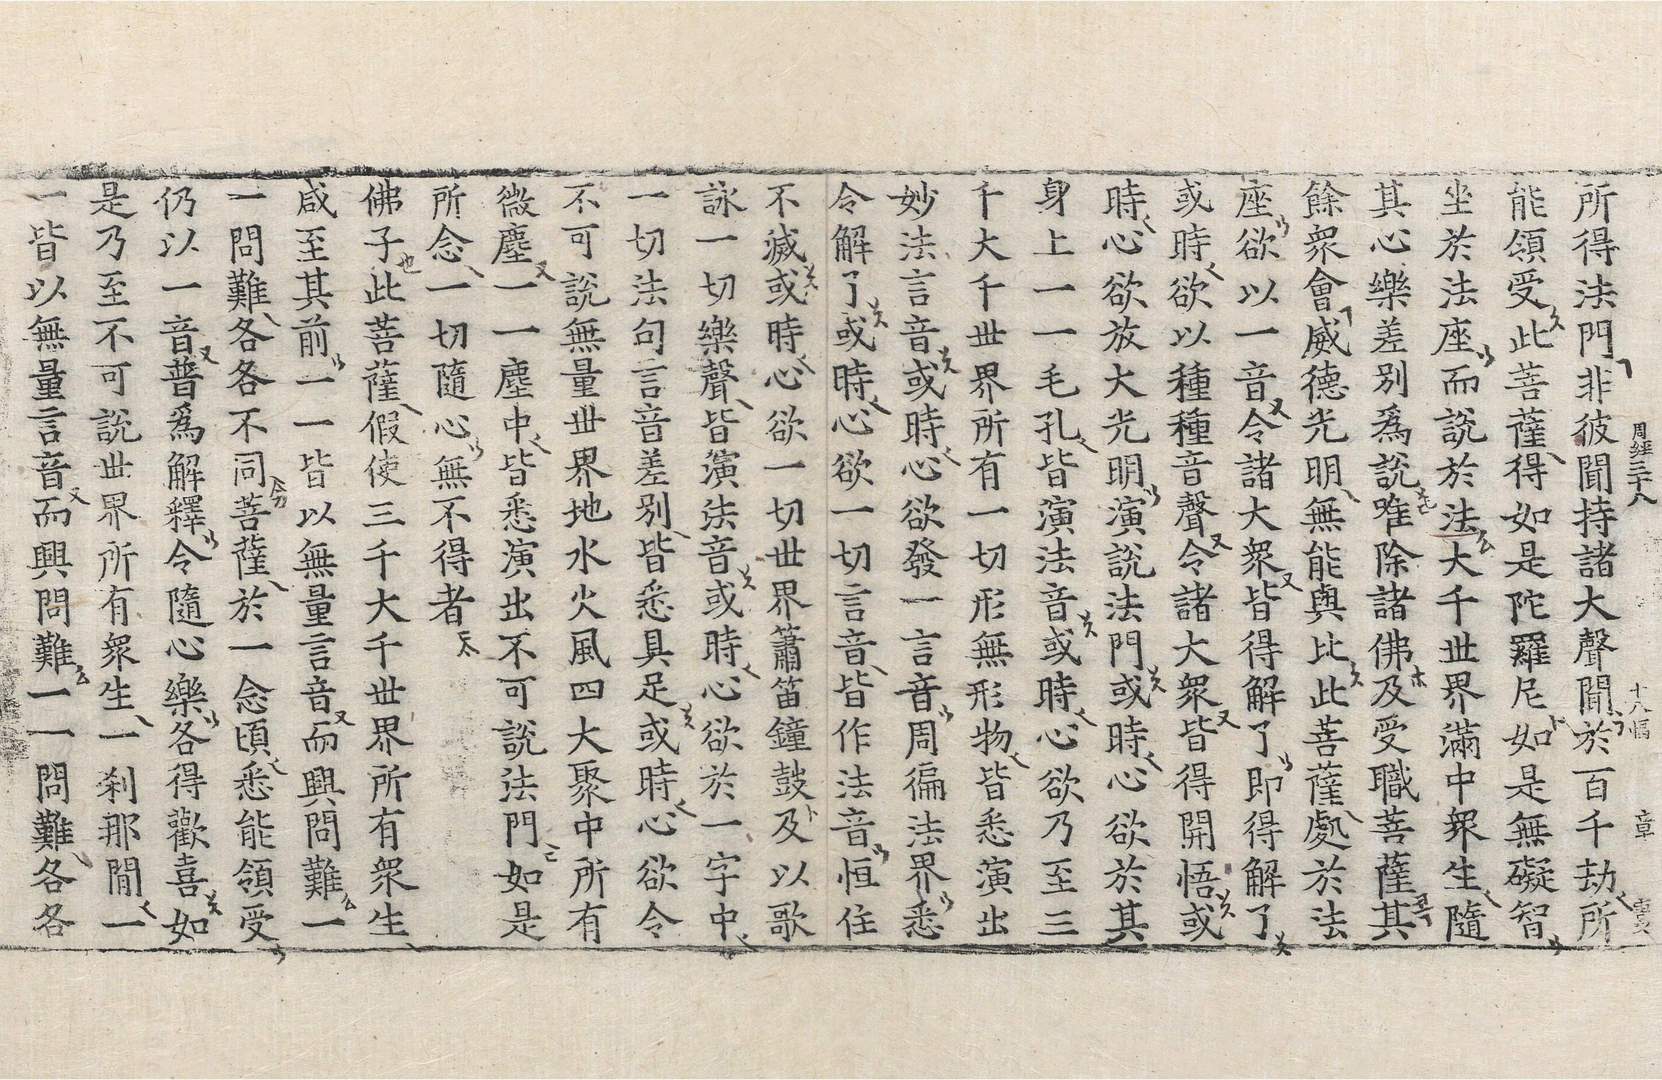 周經三十八 十八幅 章
所得法門非彼聞持諸大聲聞於百千劫所
能領受此菩薩得如是陀羅尼如是無礙智
坐於法座而說於法大千世界滿中衆生隨
其心樂差別爲說唯除諸佛及受職菩薩其
餘衆會威德光明無能與比此菩薩處於法
座欲以一音令諸大衆皆得解了即得解了
或時欲以種種音聲令諸大衆皆得開悟或
時心欲放大光明演說法門或時心欲於其
身上一一毛孔皆演法音或時心欲乃至三
千大千世界所有一切形無形物皆悉演出
妙法言音或時心欲發一言音周徧法界悉
令解了或時心欲一切言音皆作法音恒住
不滅或時心欲一切世界簫笛鐘鼓及以歌
詠一切樂聲皆演法音或時心欲於一字中
一切法句言音差別皆悉具足或時心欲令
不可說無量世界地水火風四大聚中所有
微塵一一塵中皆悉演出不可說法門如是
所念一切隨心無不得者
佛子此菩薩假使三千大千世界所有衆生
咸至其前一一皆以無量言音而興問難一
一問難各各不同菩薩於一念頃悉能領受
仍以一音普爲解釋令隨心樂各得歡喜如
是乃至不可說世界所有衆生一刹那間一
一皆以無量言音而興問難一一問難各各